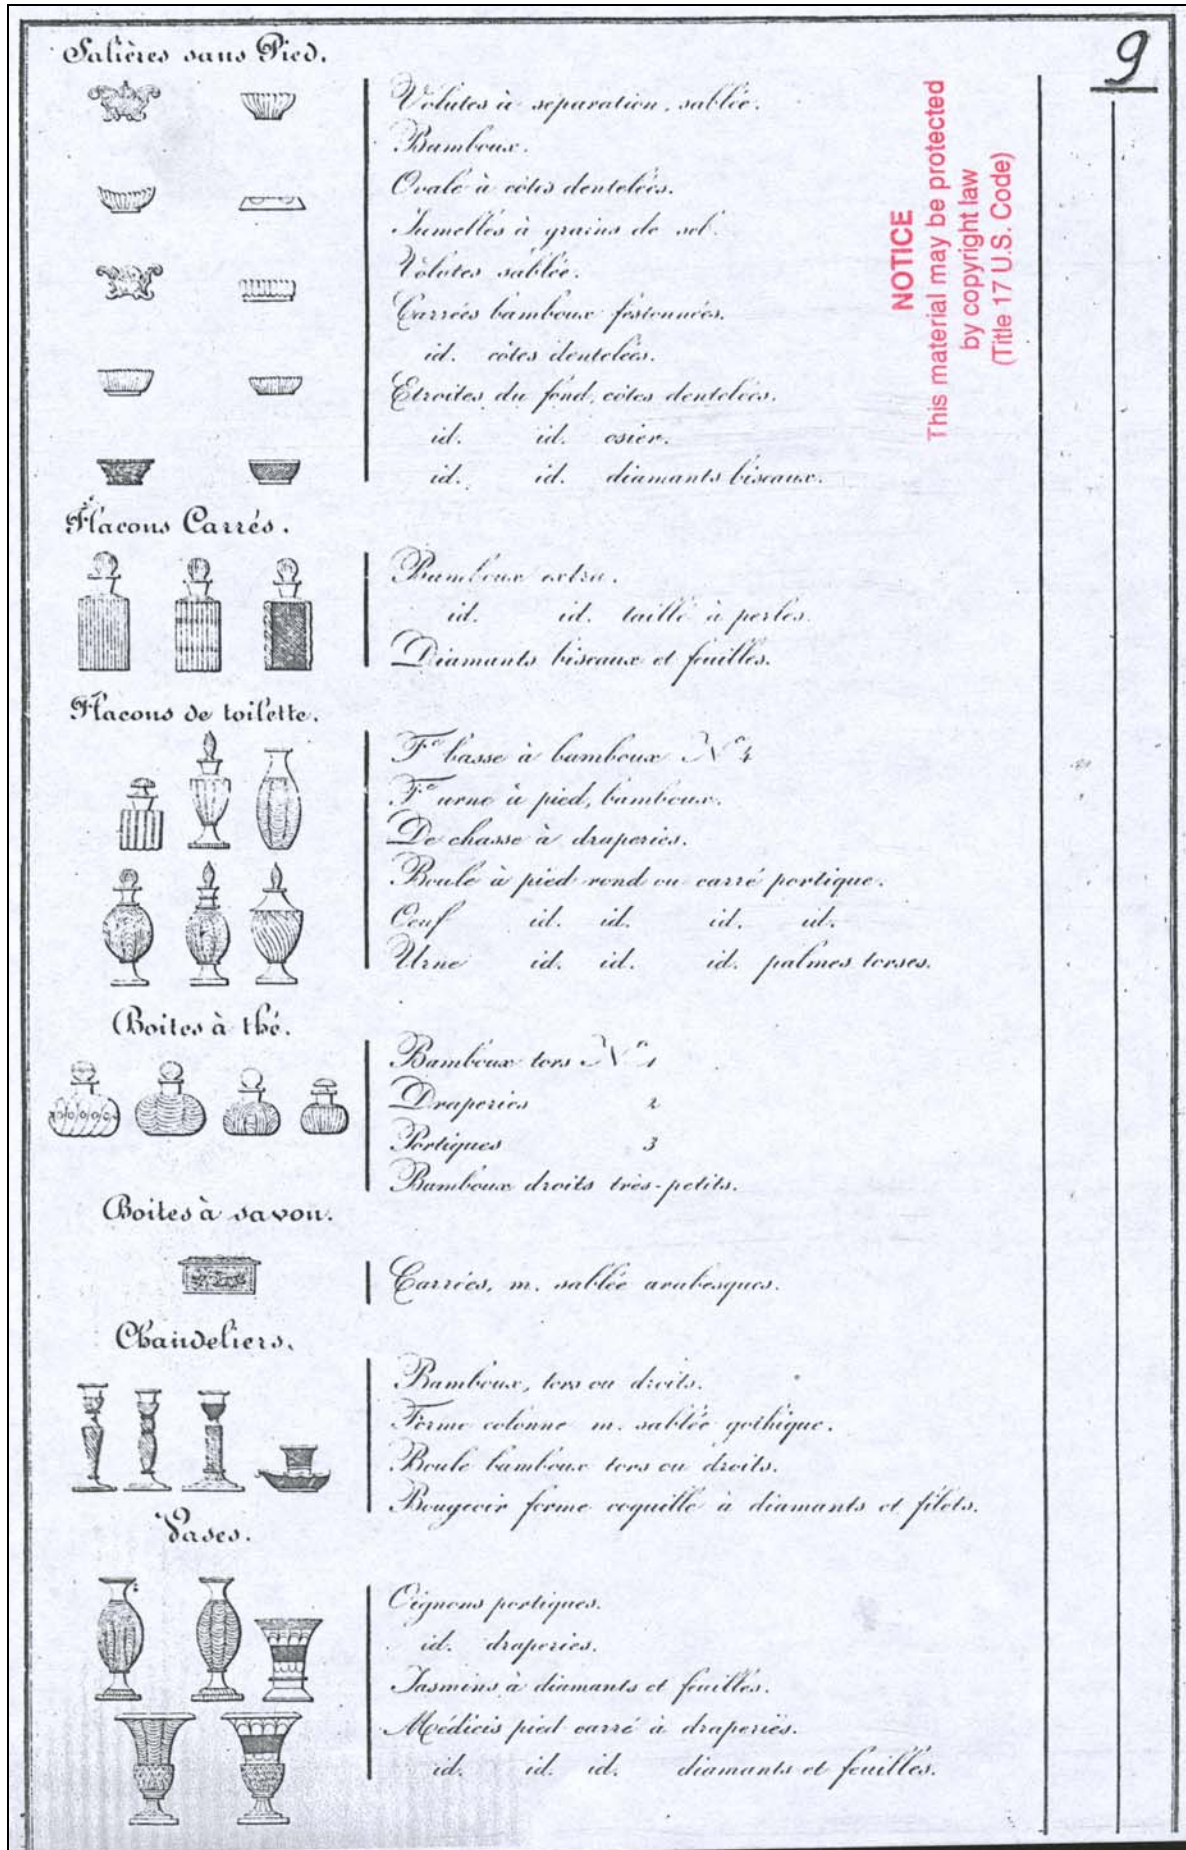 9
Salières sans Pied.
Volutes à séparation, sablée.
Bamboux.
Ovale à côtes dentelées.
Jumelles à grains de sel.
Volutes sablée.
Carrées bamboux festonnées.
id. côtes dentelées.
Etroites du fond, côtes dentelées.
id. id. osier.
id. id. diamants biseaux.
NOTICE
This material may be protected
by copyright law
(Title 17 U.S. Code)
Flacons Carrés.
Bamboux extra.
id. id. taillé à perles.
Diamants biseaux et feuilles.
Flacons de toilette.
Fe basse à bamboux No 4
Fe urne à pied, bamboux.
De chasse à draperies.
Boule à pied rond ou carré portique.
Oeuf id. id. id. id.
Urne id. id. id. palmes torses.
Boites à thé.
Bamboux tors No 1
Draperies 2
Portiques 3
Bamboux droits très-petits.
Boites à savon.
Carrées, m. sablée arabesques.
Chandeliers.
Bamboux, tors ou droits.
Forme colonne m. sablée gothique.
Boule bamboux tors ou droits.
Bougeoir forme coquille à diamants et filets.
Vases.
Oignons portiques.
id. draperies.
Jasmins à diamants et feuilles.
Médicis pied carré à draperies.
id. id. id. diamants et feuilles.